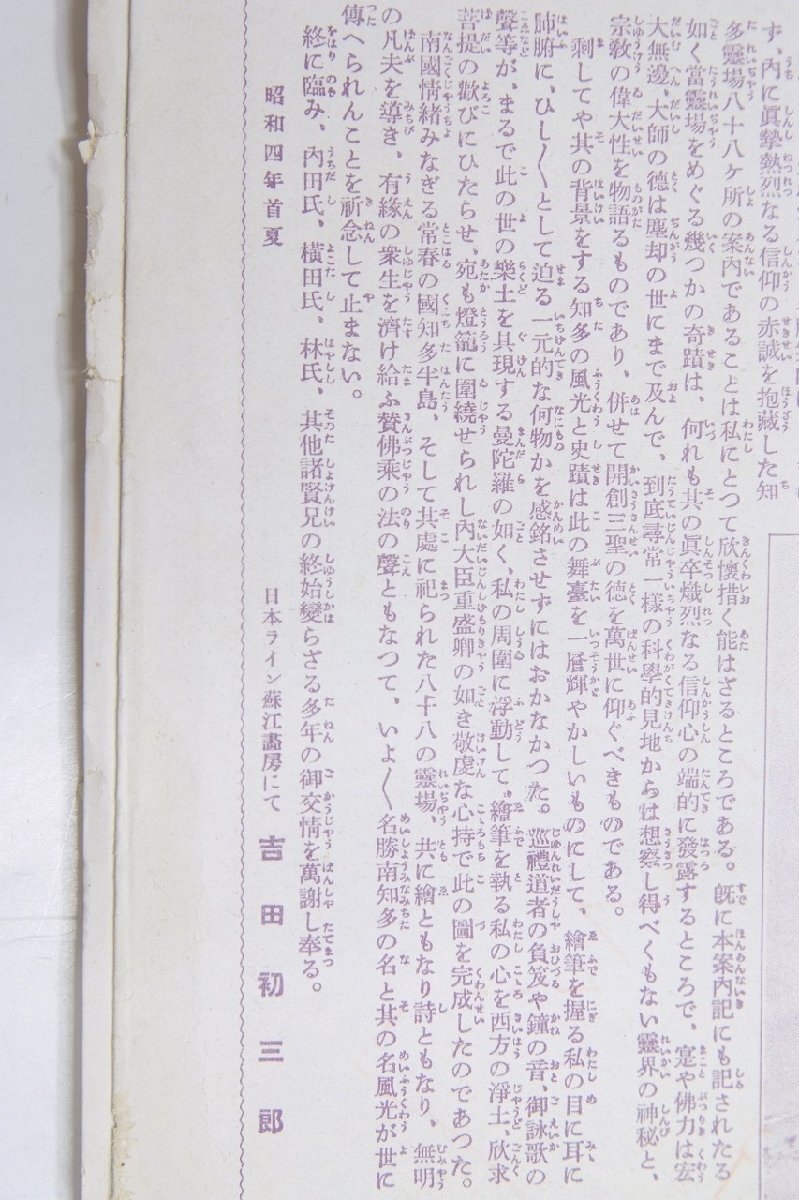 ず、内に眞摯熱烈なる信仰の赤誠を抱藏した知
多靈場八十八ケ所の案内であることは私にとつて欣懷措く能はざるところである。既に本案内記にも記されたる
如く當靈場をめぐる幾つかの奇蹟は、何れも其の眞卒熾烈なる信仰心の端的に發露するところで、寔や佛力は宏
大無邊、大師の德は塵却の世にまで及んで、到底尋常一樣の科學的見地からは想察し得べくもない靈界の神秘と、
宗敎の偉大性を物語るものであり、併せて開創三聖の徳を萬世に仰ぐべきものである。
剩してや其の背景をする知多の風光と史蹟は此の舞臺を一層輝やかしいものにして、繪筆を握る私の目に耳に
肺腑に、ひし〱として迫る一元的な何物かを感銘させずにはおかなかつた。巡禮道者の負笈や鐘の音、御詠歌の
聲等が、まるで此の世の樂土を具現する曼陀羅の如く、私の周圍に浮動して、繪筆を執る私の心を西方の淨土、欣求
菩提の歡びにひたらせ、宛も燈籠に圍繞せられし内大臣重盛卿の如き敬虔な心持で此の圖を完成したのであつた。
南國情緖みなぎる常春の國知多半島、そして其處に祀られた八十八の靈場、共に繪ともなり詩ともなり、無明
の凡夫を導き、有緣の衆生を濟け給ふ賛佛乘の法の聲ともなつて、いよ〱名勝南知多の名と其の名風光が世に
傳へられんことを祈念して止まない。
終に臨み、内田氏、橫田氏、林氏、其他諸賢兄の終始變らざる多年の御交情を萬謝し奉る。
昭和四年首夏
日本ライン蘇江畵房にて 吉田初三郎